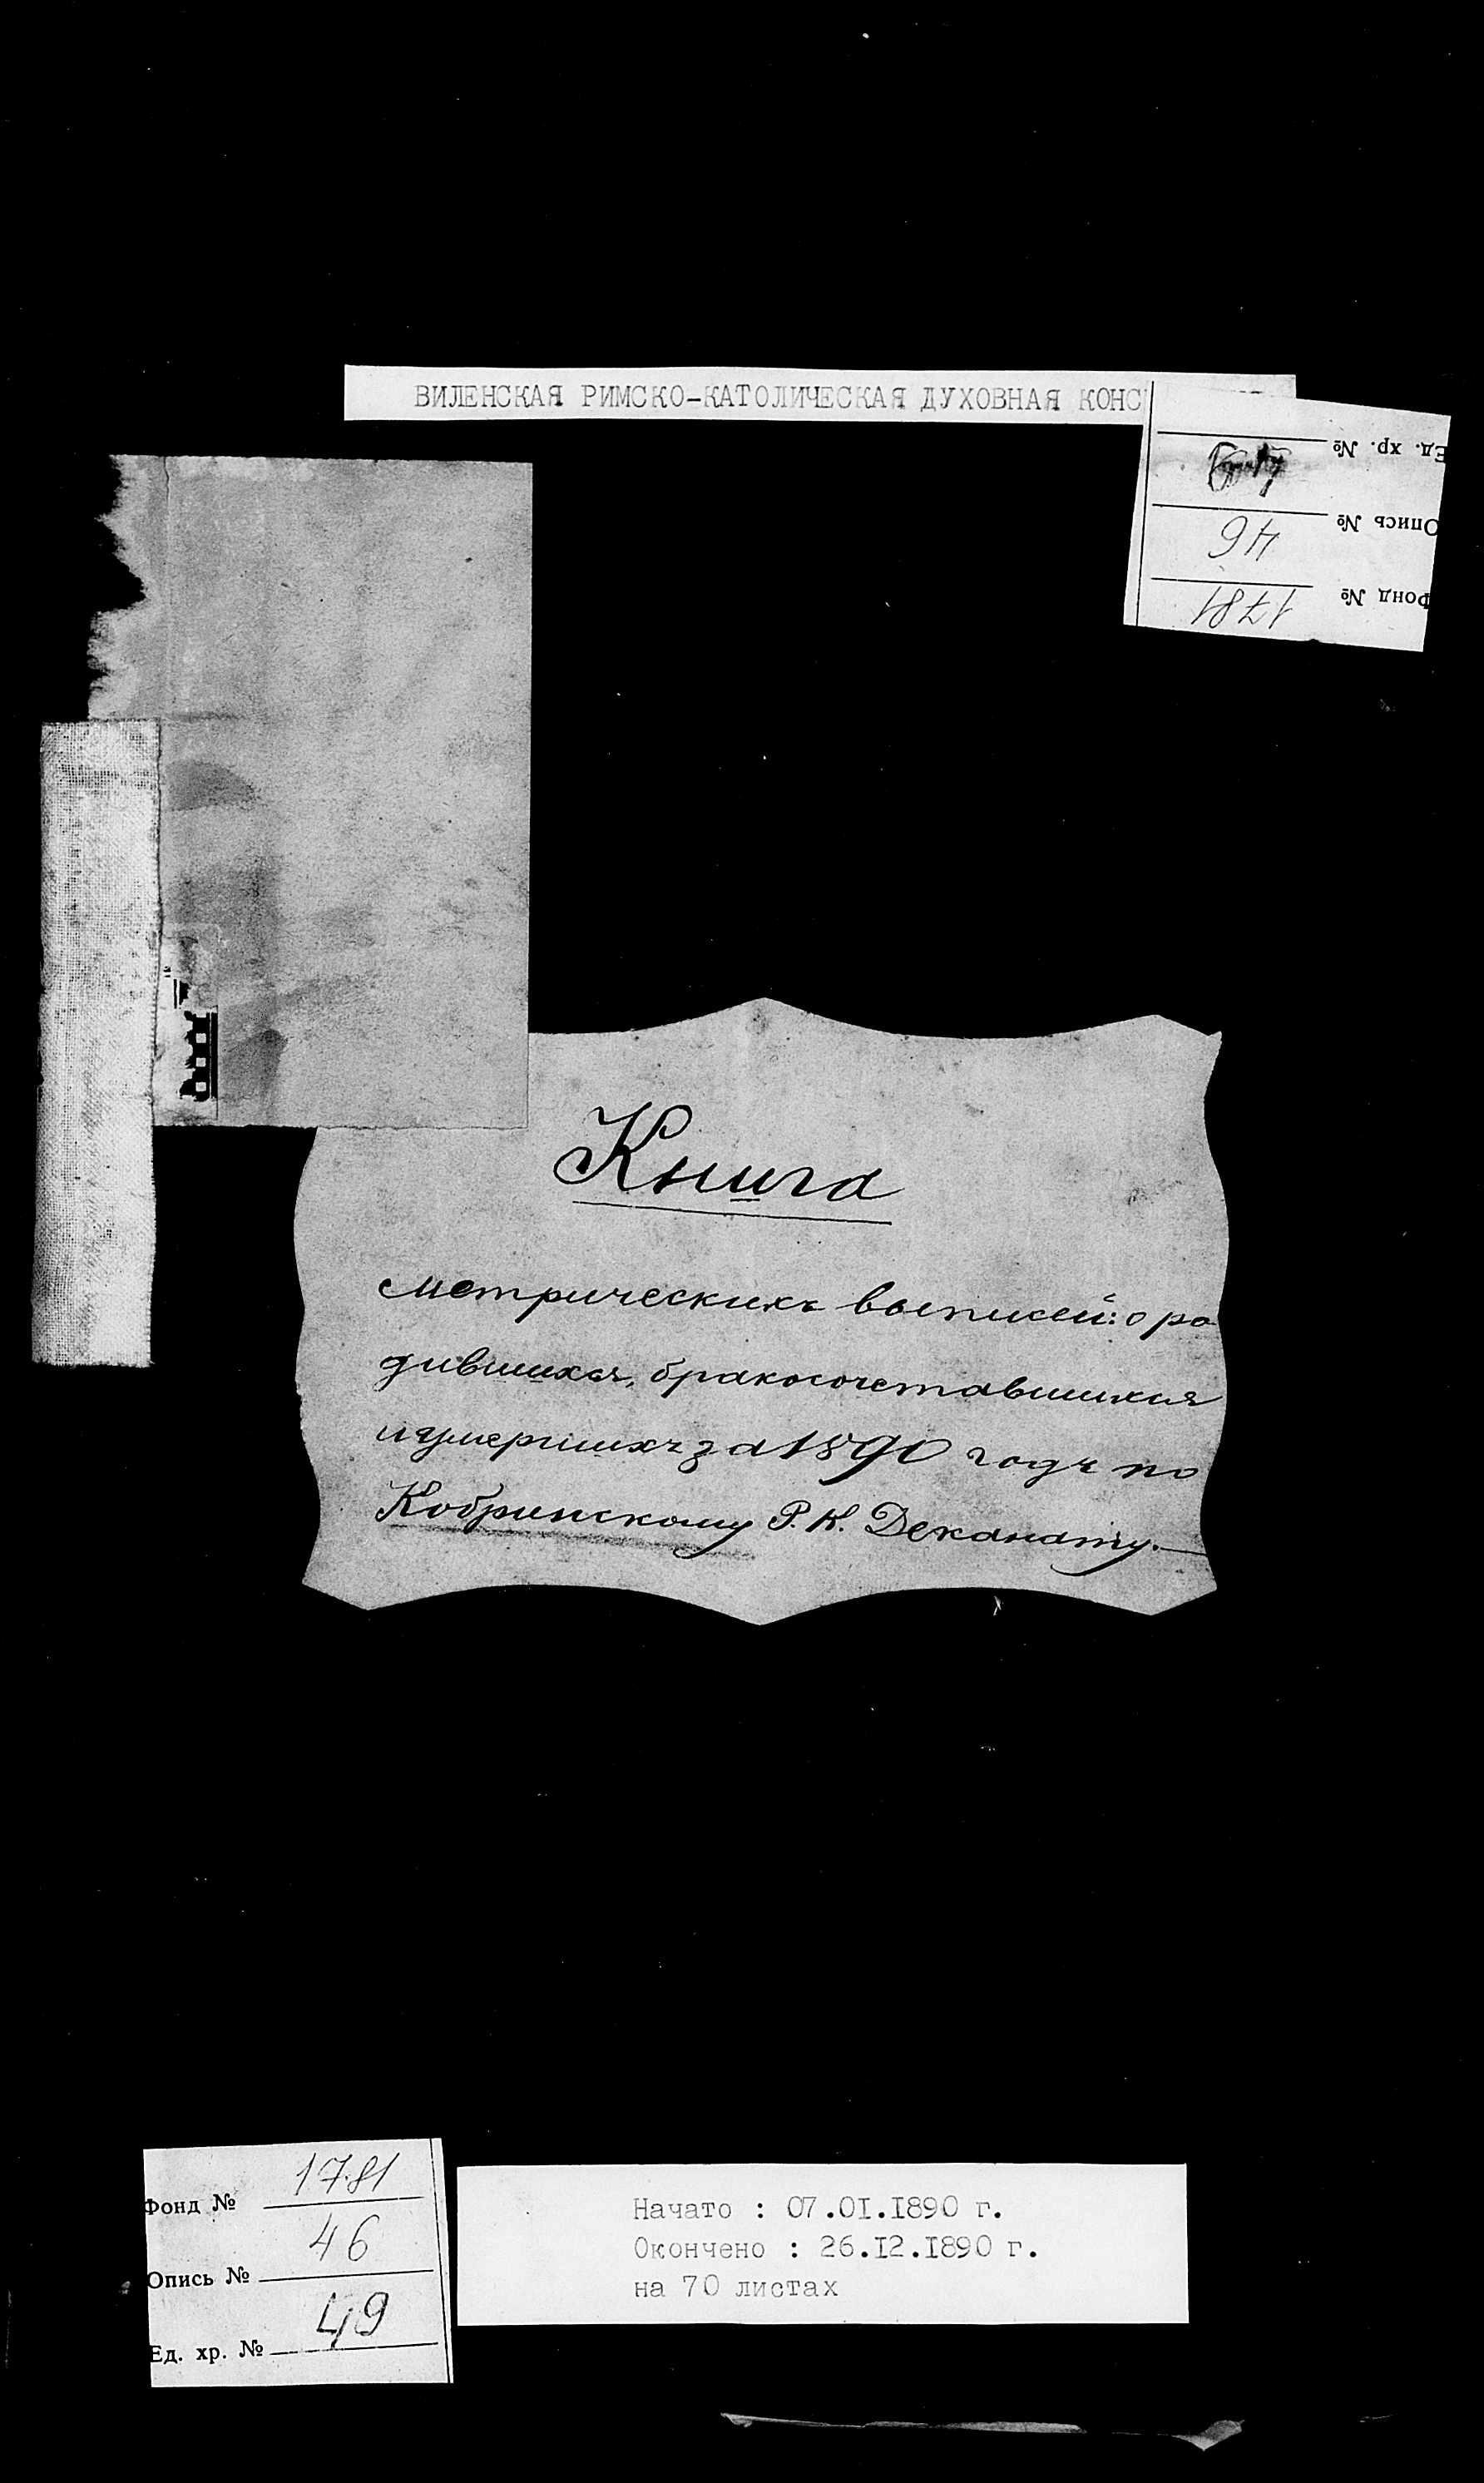 ВИЛЕНСКАЯ РИМСКО-КАТОЛИЧЕСКАЯ ДУХОВНАЯ КОНС
Ед. хр. №
Опись № 46
Фонд № 1781
Книга
метрическихъ выписей: о ро
дившихся, бракосочетавшихся
и умершихъ за 1890 годъ по
Кобринскому Р. К. Деканату.—
Фонд № 1781
Опись № 46
Ед. хр. № 49
Начато : 07.01.1890 г.
Окончено : 26.12.1890 г.
на 70 листах